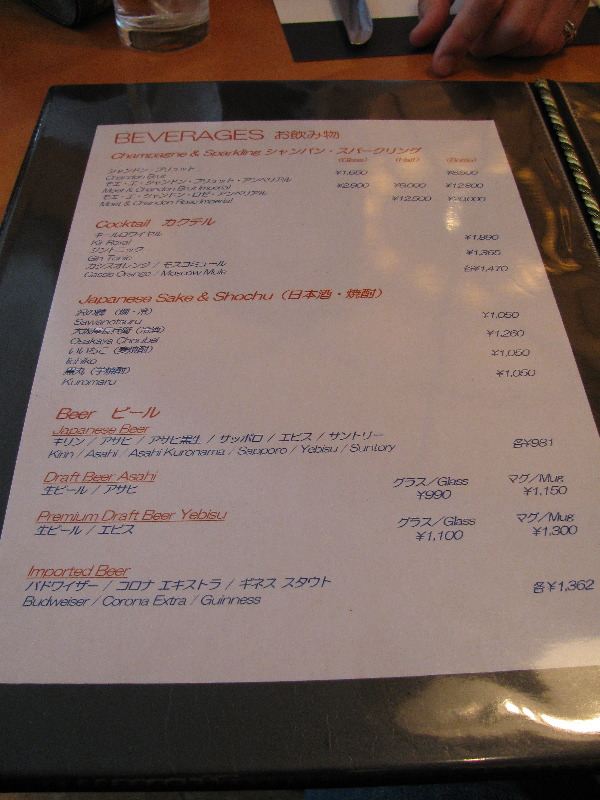 BEVERAGES お飲み物
Champagne & Sparkling シャンパン・スパークリング
(Glass) (Half) (Bottle)
シャンドン・ブリュット
Chandon Brut
モエ・エ・シャンドン・ブリュット・アンペリアル ¥2,900 ¥12,800
Moet & Chandon Brut Imperial
モエ・エ・シャンドン・ロゼ・アンペリアル ¥12,500 ¥20,000
Moet & Chandon Rose Imperial
Cocktail カクテル
キールロワイヤル ¥1,890
Kir Royal
ジントニック ¥1,365
Gin Tonic
カシスオレンジ / モスコミュール 各¥1,470
Cassis Orange / Moscow Mule
Japanese Sake & Shochu (日本酒・焼酎)
沢の鶴 (燗・冷) ¥1,050
Sawanotsuru
¥1,260
Osakaya Choubei
いいちこ (麦焼酎) ¥1,050
Iichiko
黒丸 (芋焼酎) ¥1,050
Kuromaru
Beer ビール
Japanese Beer
キリン / アサヒ / アサヒ黒生 / サッポロ / エビス / サントリー 各¥981
Kirin / Asahi / Asahi Kuronama / Sapporo / Yebisu / Suntory
Draft Beer Asahi グラス/Glass マグ/Mug
生ビール / アサヒ ¥990 ¥1,150
Premium Draft Beer Yebisu グラス/Glass マグ/Mug
生ビール / エビス ¥1,100 ¥1,300
Imported Beer
バドワイザー / コロナ エキストラ / ギネス スタウト 各¥1,362
Budweiser / Corona Extra / Guinness